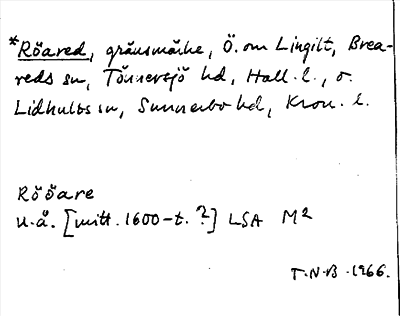 *Röared, gränsmärke, Ö. om Lingilt, Brea-
reds sn, Tönnersjö hd, Hall. l., o.
Lidhults sn, Sunnerbo hd, Kron. l.
Rööare
u.å. [mitt. 1600-t.?] LSA M2
T.N-B. 1966.